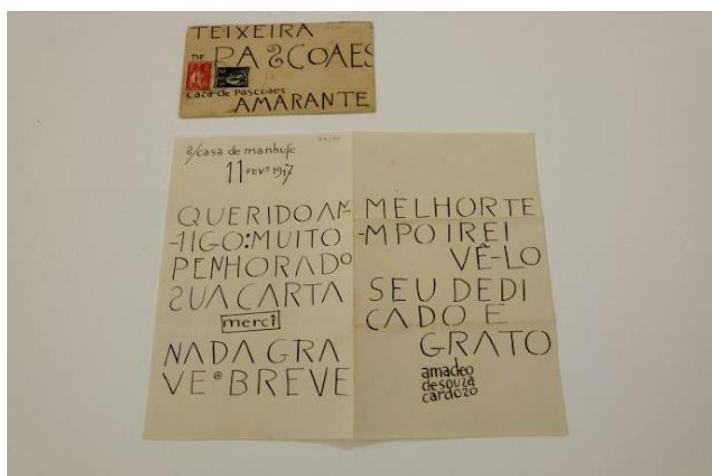 TEIXEIRA
DE PASCOAES
Caza de Pascoaes
AMARANTE
s/casa de manhufe
11 FEVº 1917
QUERIDO AM-
-IIGO:MUITO
PENHORADO
SUA CARTA
merci
NADA GRA
VE e BREVE
MELHORTE
-MPO IREI
VÊ-LO
SEU DEDI
CADO E
GRATO
amadeo
desouza
cardozo